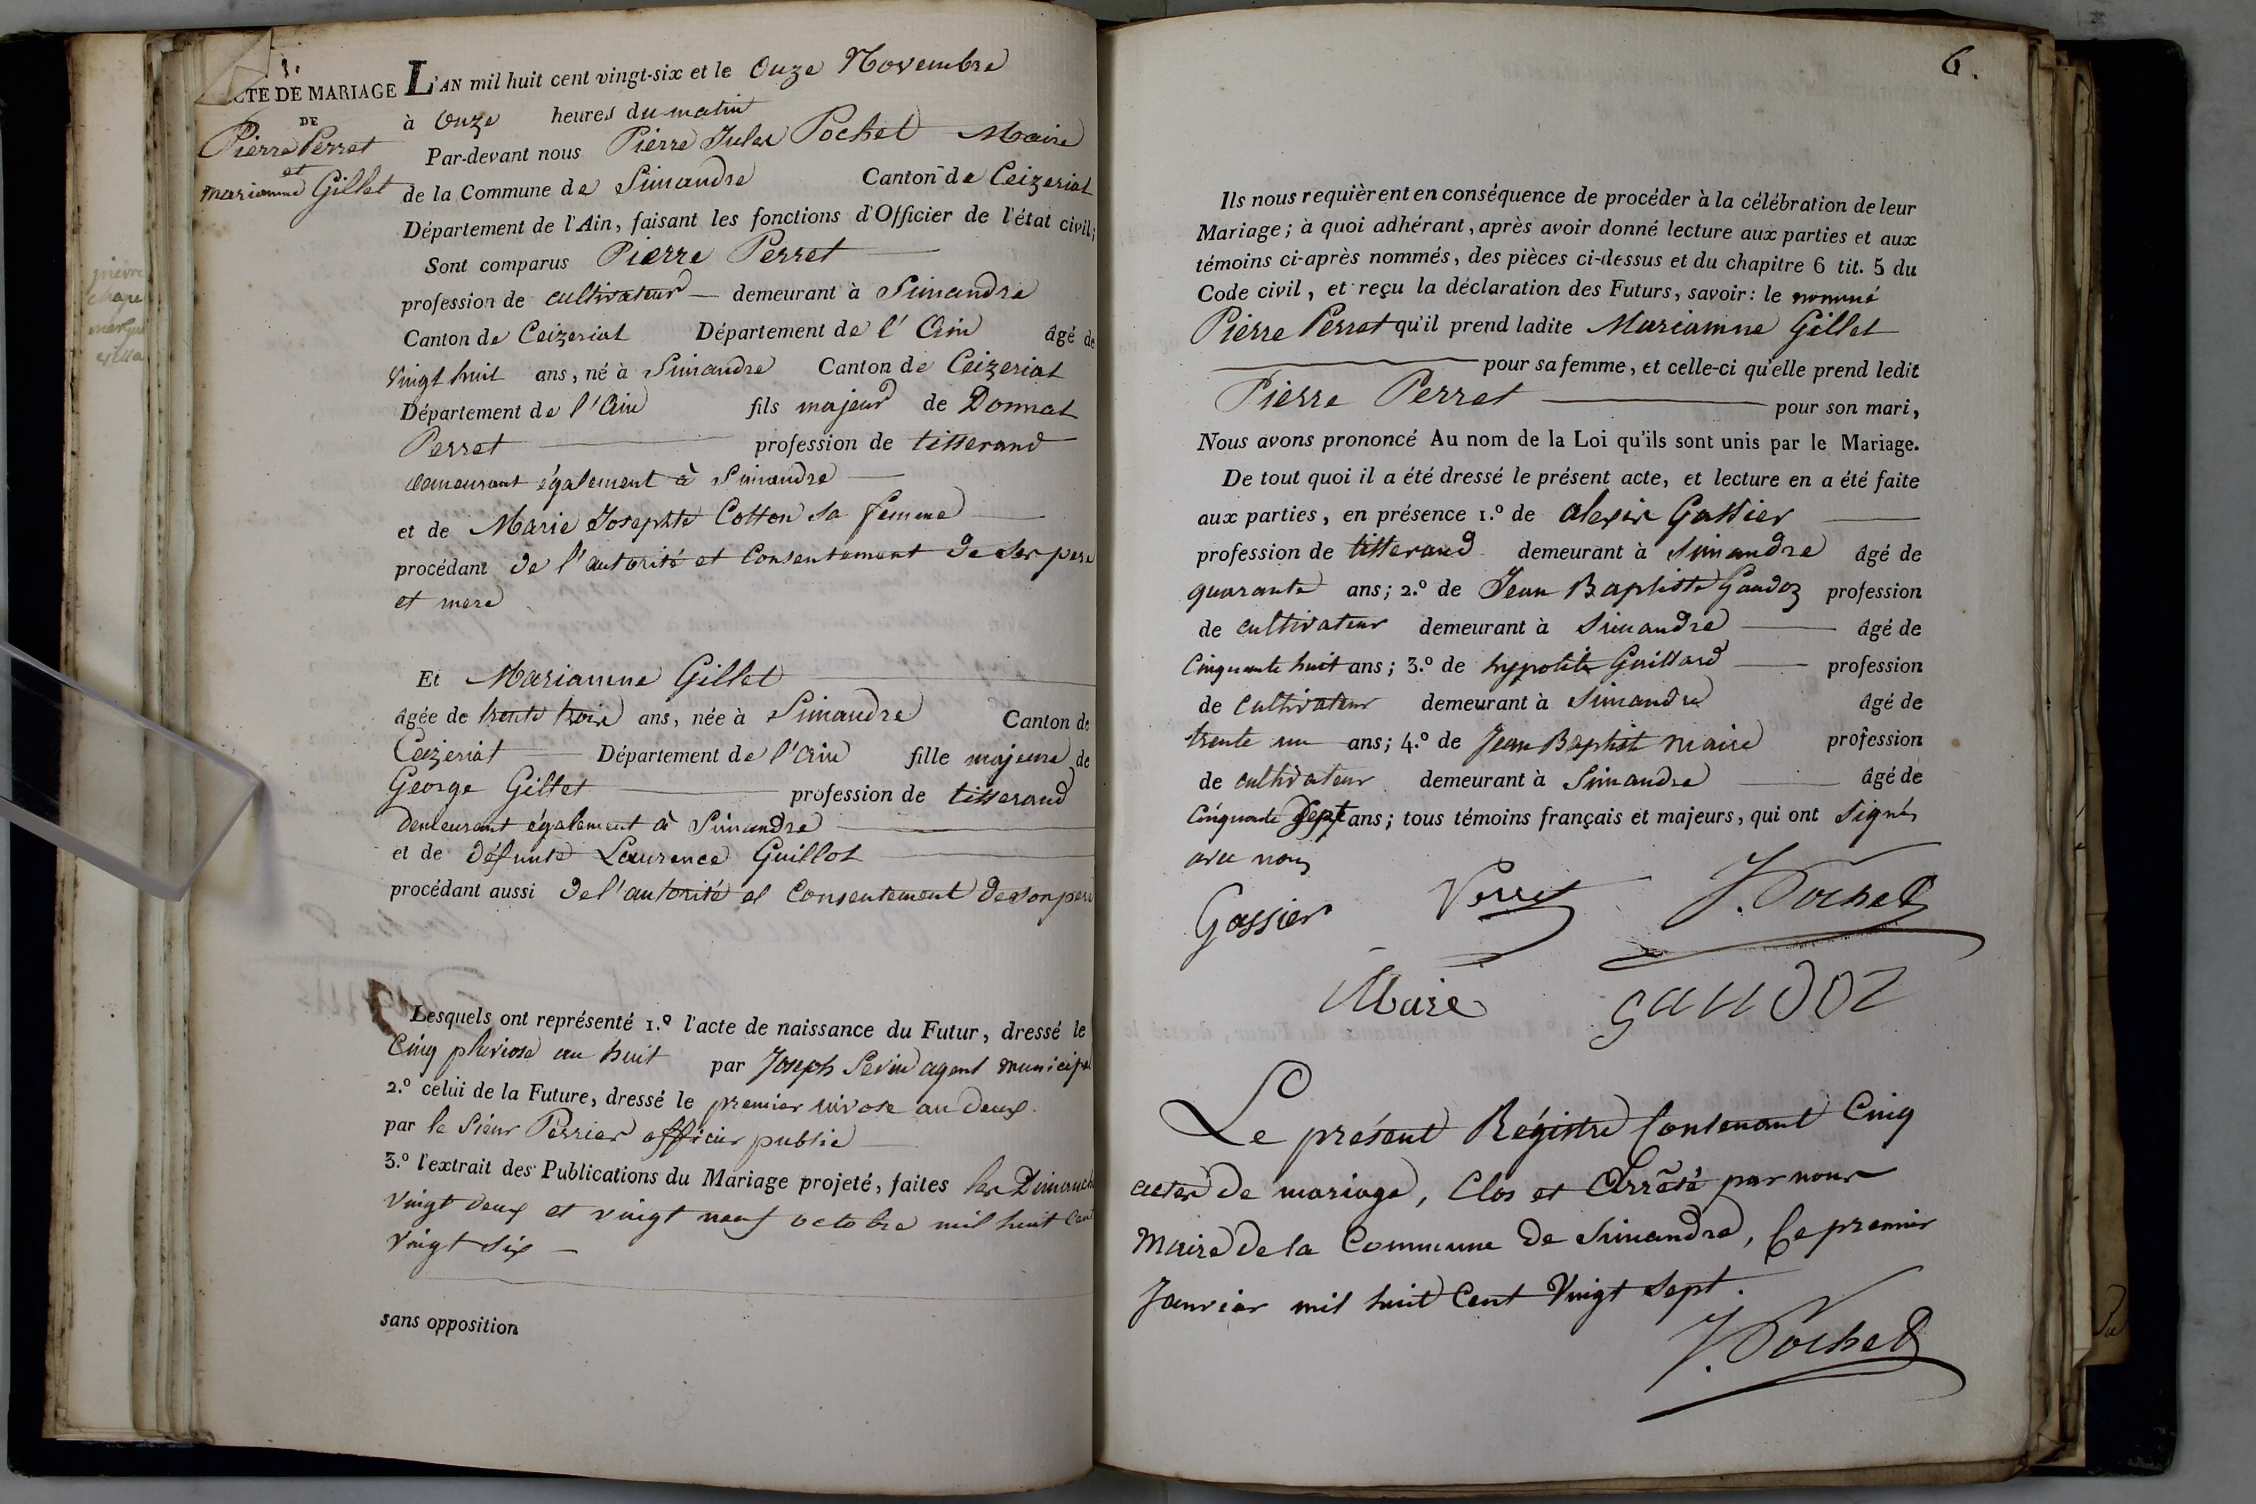 ACTE DE MARIAGE
DE
Pierre Perret
et
marianne Gillet
L'AN mil huit cent vingt-six et le Onze Novembre
à Onze heures du matin
Par-devant nous Pierre Jules Pochet Maire
de la Commune de Simandre Canton de Ceizeriat
Département de l'Ain, faisant les fonctions d'Officier de l'état civil;
Sont comparus Pierre Perret
profession de cultivateur demeurant à Simandre
Canton de Ceizeriat Département de l'Ain âgé de
Vingt huit ans, né à Simandre Canton de Ceizeriat
Département de l'Ain fils majeur de Donnat
Perret profession de tisserand
demeurant également à Simandre
et de Marie Josephte Cotton sa femme
procédant de l'autorité et Consentement de ses pere
et mere
Et Marianne Gillet
âgée de trente trois ans, née à Simandre Canton de
Ceizeriat Département de l'Ain fille majeure de
George Gillet profession de tisserand
demeurant également à Simandre
et de défunte Laurence Guillot
procédant aussi de l'autorité et Consentement de son pere
Lesquels ont représenté 1.º l'acte de naissance du Futur, dressé le
Cinq pluviose an huit par Joseph Sevin agent municipal
2.º celui de la Future, dressé le premier nivose an deux
par le Sieur Perrier officier public
3.º l'extrait des Publications du Mariage projeté, faites les Dimanches
Vingt deux et vingt neuf octobre mil huit Cent
Vingt six
sans opposition
6.
Ils nous requièrent en conséquence de procéder à la célébration de leur
Mariage; à quoi adhérant, après avoir donné lecture aux parties et aux
témoins ci-après nommés, des pièces ci-dessus et du chapitre 6 tit. 5 du
Code civil, et reçu la déclaration des Futurs, savoir: le nommé
Pierre Perret qu'il prend ladite Marianne Gillet
pour sa femme, et celle-ci qu'elle prend ledit
Pierre Perret pour son mari,
Nous avons prononcé Au nom de la Loi qu'ils sont unis par le Mariage.
De tout quoi il a été dressé le présent acte, et lecture en a été faite
aux parties, en présence 1.º de alexis Gassier
profession de tisserand demeurant à Simandre âgé de
quarante ans; 2.º de Jean Baptiste Gaudoz profession
de cultivateur demeurant à Simandre âgé de
Cinquante huit ans; 3.º de hypolite Guillard profession
de Cultivateur demeurant à Simandre âgé de
trente un ans; 4.º de Jean Baptiste Maire profession
de cultivateur demeurant à Simandre âgé de
Cinquante Sept ans; tous témoins français et majeurs, qui ont signés
avec nous
Gassier Perret J. Pochet
Maire gaudoz
Le présent Régistre Contenant Cinq
actes de mariage, Clos et Arrêté par nous
Maire de la Commune de Simandre, Le premier
Janvier mil huit Cent Vingt Sept.
J. Pochet